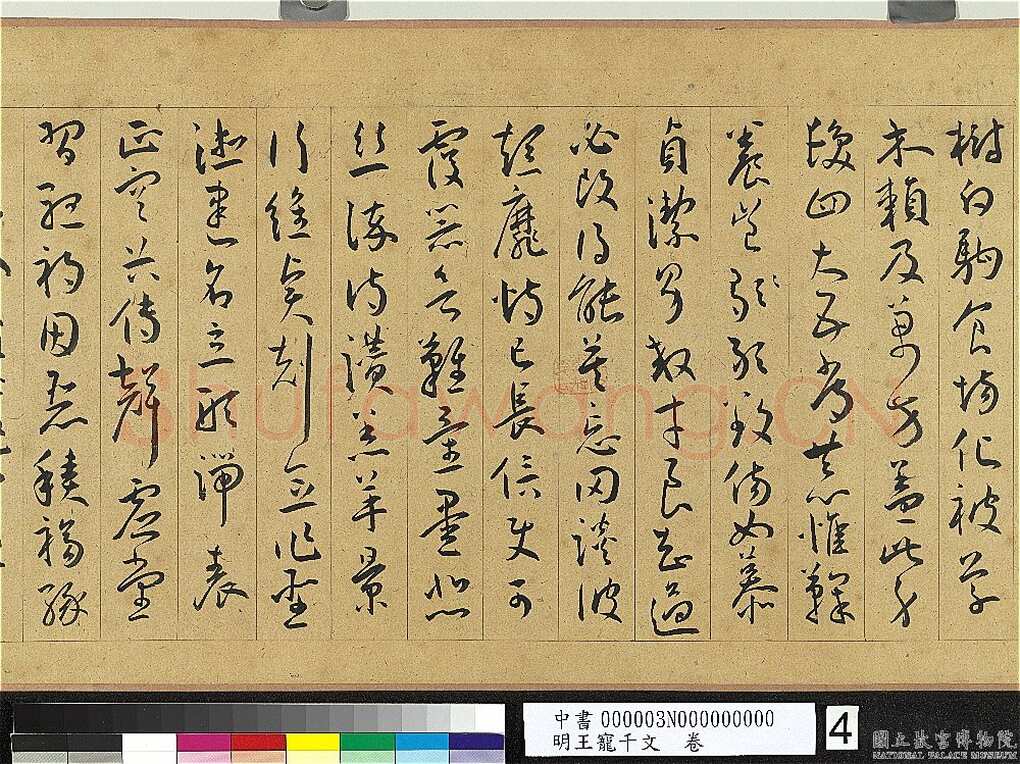 樹白駒食場化被草
木賴及萬方蓋此身
髮四大五常恭惟鞠
養豈敢毀傷女慕
貞潔男效才良知過
必改得能莫忘罔談彼
短靡恃己長信使可
覆器欲難量墨悲
絲染詩讚羔羊景
行維賢剋念作聖
德建名立形端表
正空谷傳聲虛堂
習聽禍因惡積福緣
Shufawang.CN
中書 000003N000000000
明王寵千文 卷
4
國立故宮博物院
NATIONAL PALACE MUSEUM